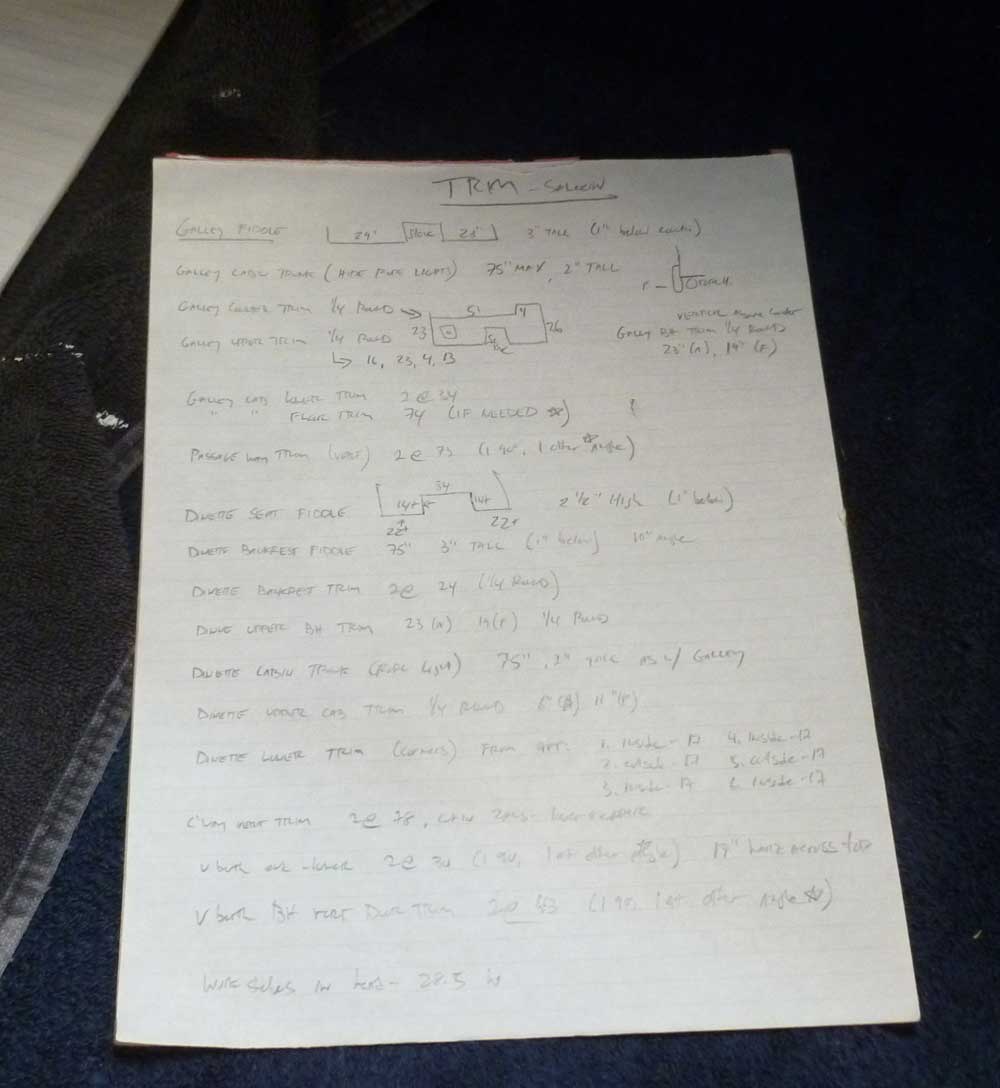 TRIM - SALOON
GALLEY FIDDLE 24" STOVE 23" 3" TALL (1" below counter)
GALLEY CABIN TRUNK (HIDE ROPE LIGHTS) 75" MAX, 2" TALL
GALLEY COUNTER TRIM 1/4 ROUND 51 4
GALLEY UPPER TRIM 1/4 ROUND 23 26
VERTICAL above counter
GALLEY BH TRIM 1/4 ROUND
23" (A), 19" (F)
16, 23, 4, 13
GALLEY CAB LOWER TRIM 2 @ 34
" " FLOOR TRIM 74 (IF NEEDED ☆)
PASSAGE WAY TRIM (VERT) 2 @ 73 (1 90°, 1 other ☆ Angle)
34
DINETTE SEAT FIDDLE 14+ 14+ 2 1/2" HIGH (1" below)
22+ 22+
DINETTE BACKREST FIDDLE 75" 3" TALL (1" below) 10° Angle
DINETTE BACKREST TRIM 2 @ 24 (1/4 ROUND)
DINETTE UPPER BH TRIM 23 (A) 19 (F) 1/4 ROUND
DINETTE CABIN TRUNK (ROPE Light) 75", 2" TALL AS W/ GALLEY
DINETTE UPPER CAB TRIM 1/4 ROUND 8" (A) 11" (F)
DINETTE LOWER TRIM (corners) FROM AFT: 1. inside - 17 4. inside - 17
2. outside - 17 5. outside - 17
3. inside - 17 6. inside - 17
VERT TRIM 2 @ 78,
V berth - lower 2 @ 34 (1 90, 1 at other ☆ angle) 19" horiz across
V berth BH VERT DOOR TRIM 2 @ 43 (1 90, 1 at other Angle ☆)
in - 28.5